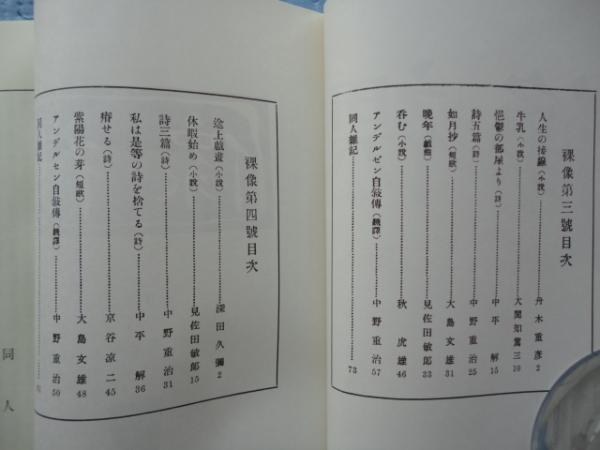 裸像第三號目次
人生の接線（小說）……舟木重彥 2
牛乳（小說）……大間知篤三 10
悒鬱の部屋より（詩）……中平解 15
詩五篇（詩）……中野重治 25
如月抄（短歌）……大島文雄 31
晚年（戲曲）……見佐田敏郎 33
呑む（小說）……秋虎雄 46
アンデルセン自敍傳（飜譯）……中野重治 57
同人雜記……73
裸像第四號目次
途上戲畫（小說）……深田久彌 2
休暇始め（小說）……見佐田敏郎 15
詩三篇（詩）……中野重治 31
私は是等の詩を捨てる（詩）……中平解 36
瘠せる（詩）……京谷凉二 45
紫陽花の芽（短歌）……大島文雄 48
アンデルセン自敍傳（飜譯）……中野重治 50
同人雜記……
同人